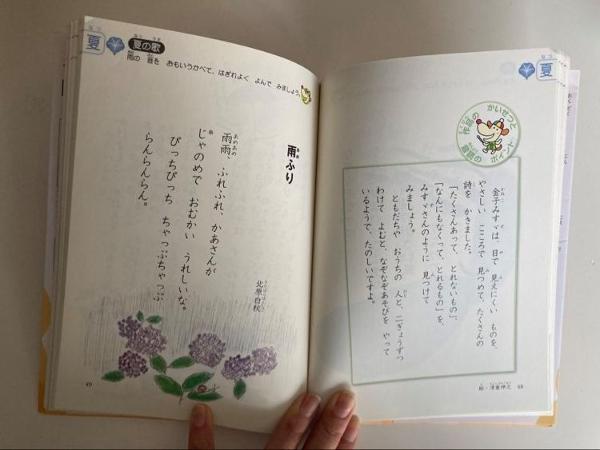 夏
かいせつと
音読の ポイント
金子みすゞは、目で 見えにくい ものを、
やさしい こころで 見つめて、たくさんの
詩を かきました。
「たくさんあって、とれないもの」、
「なんにもなくって、とれるもの」を、
みすゞさんのように 見つけて
みましょう。
ともだちや おうちの 人と、二ぎょうずつ
わけて よむと、なぞなぞあそびを やって
いるようで、たのしいですよ。
48
夏
夏の歌
雨の 音を おもいうかべて、はぎれよく よんで みましょう。
雨ふり
北原白秋
雨雨、ふれふれ、かあさんが
じゃのめで おむかい うれしいな。
ぴっちぴっち ちゃっぷちゃっぷ
らんらんらん。
49